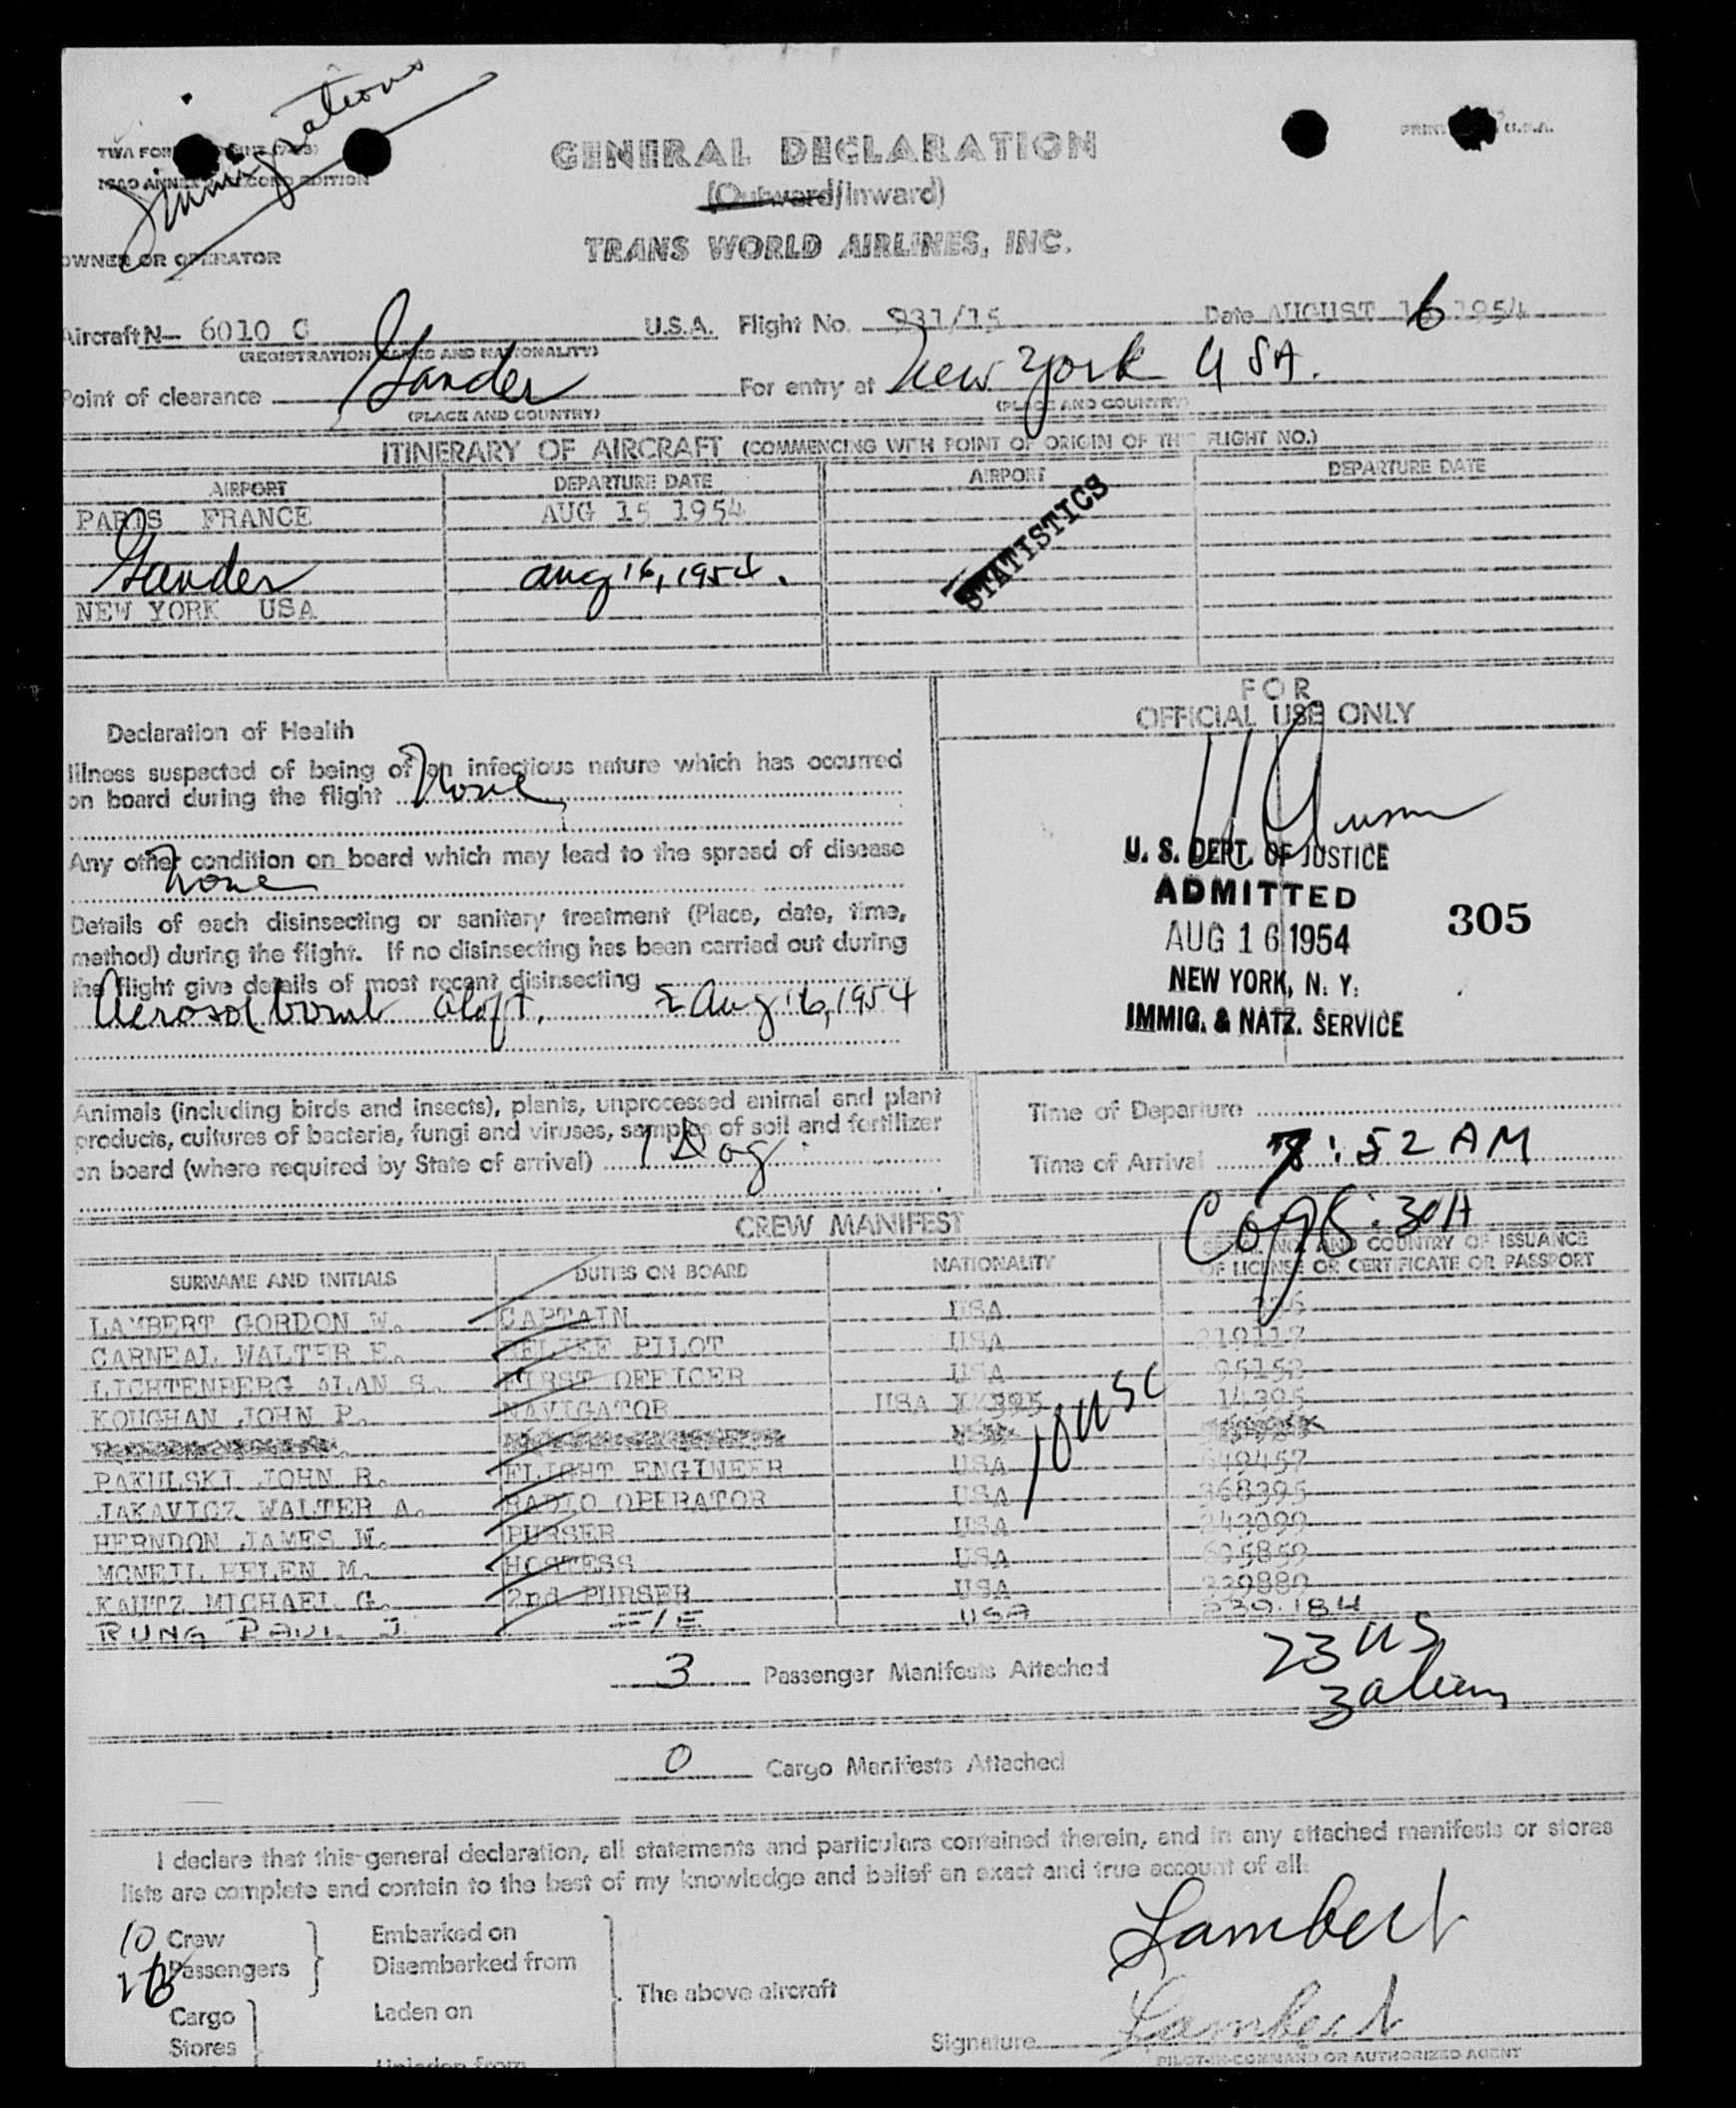 Immigrations
PRINTED U.S.A.
GENERAL DECLARATION
(Outward/Inward)
TRANS WORLD AIRLINES, INC.
OWNER OR OPERATOR
Aircraft N- 6010 C U.S.A. Flight No. 931/15 Date AUGUST 16 1954
(REGISTRATION MARKS AND NATIONALITY)
Point of clearance Gander For entry at New York USA.
(PLACE AND COUNTRY) (PLACE AND COUNTRY)
ITINERARY OF AIRCRAFT (COMMENCING WITH POINT OF ORIGIN OF THIS FLIGHT NO.)
AIRPORT DEPARTURE DATE AIRPORT DEPARTURE DATE
PARIS FRANCE AUG 15 1954
STATISTICS
Gander Aug 16, 1954.
NEW YORK USA
Declaration of Health
Illness suspected of being of an infectious nature which has occurred
on board during the flight None
Any other condition on board which may lead to the spread of disease
None
Details of each disinsecting or sanitary treatment (Place, date, time,
method) during the flight. If no disinsecting has been carried out during
the flight give details of most recent disinsecting
Aerosol bomb aloft. Aug 16, 1954
FOR
OFFICIAL USE ONLY
U. S. DEPT. OF JUSTICE
ADMITTED
AUG 16 1954
305
NEW YORK, N. Y.
IMMIG. & NATZ. SERVICE
Animals (including birds and insects), plants, unprocessed animal and plant
products, cultures of bacteria, fungi and viruses, samples of soil and fertilizer
on board (where required by State of arrival) 1 Dog
Time of Departure
Time of Arrival 7:52 AM
8:30A
CREW MANIFEST
SURNAME AND INITIALS DUTIES ON BOARD NATIONALITY SERIAL NO. AND COUNTRY OF ISSUANCE
OF LICENSE OR CERTIFICATE OR PASSPORT
LAMBERT GORDON W. CAPTAIN USA
CARNEAL WALTER E. RELIEF PILOT USA 219117
LICHTENBERG ALAN S. FIRST OFFICER USA 95152
KOUGHAN JOHN P. NAVIGATOR USA 14395
PAKULSKI JOHN R. FLIGHT ENGINEER USA 649457
JAKAVICZ WALTER A. RADIO OPERATOR USA 368395
HERNDON JAMES W. PURSER USA 243099
MCNEIL HELEN M. HOSTESS USA 605859
KAUTZ MICHAEL G. 2nd PURSER USA 339889
RUNG PAUL J F/E USA 330184
10 USC
3 Passenger Manifests Attached
23 US
3 aliens
0 Cargo Manifests Attached
I declare that this general declaration, all statements and particulars contained therein, and in any attached manifests or stores
lists are complete and contain to the best of my knowledge and belief an exact and true account of all:
10 Crew
26 Passengers
Embarked on
Disembarked from
Cargo
Stores
Laden on
Unladen from
The above aircraft
Lambert
Signature Lambert
PILOT-IN-COMMAND OR AUTHORIZED AGENT